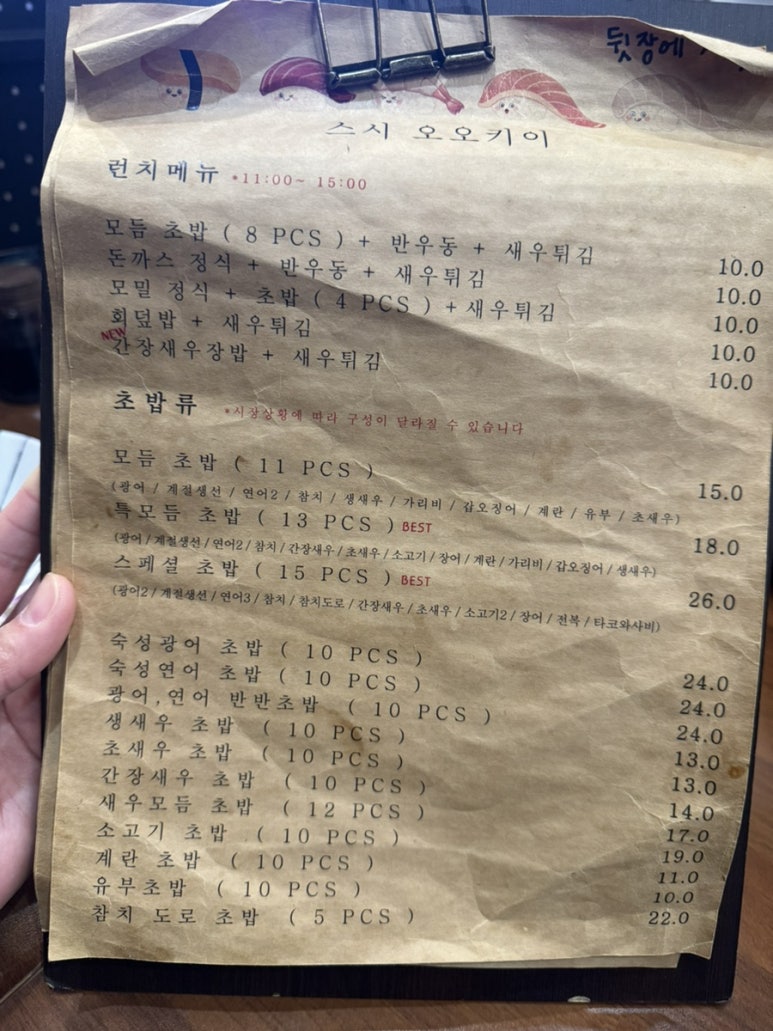 뒷장에
스시 오오키이
런치메뉴 *11:00~ 15:00
모듬 초밥 ( 8 PCS ) + 반우동 + 새우튀김 10.0
돈까스 정식 + 반우동 + 새우튀김 10.0
모밀 정식 + 초밥 ( 4 PCS ) + 새우튀김 10.0
회덮밥 + 새우튀김 10.0
NEW 간장새우장밥 + 새우튀김 10.0
초밥류 *시장상황에 따라 구성이 달라질 수 있습니다
모듬 초밥 ( 11 PCS ) 15.0
(광어 / 계절생선 / 연어2 / 참치 / 생새우 / 가리비 / 갑오징어 / 계란 / 유부 / 초새우)
특모듬 초밥 ( 13 PCS ) BEST 18.0
(광어 / 계절생선 / 연어2 / 참치 / 간장새우 / 초새우 / 소고기 / 장어 / 계란 / 가리비 / 갑오징어 / 생새우)
스페셜 초밥 ( 15 PCS ) BEST 26.0
(광어2 / 계절생선 / 연어3 / 참치 / 참치도로 / 간장새우 / 초새우 / 소고기2 / 장어 / 전복 / 타코와사비)
숙성광어 초밥 ( 10 PCS ) 24.0
숙성연어 초밥 ( 10 PCS ) 24.0
광어,연어 반반초밥 ( 10 PCS ) 24.0
생새우 초밥 ( 10 PCS ) 13.0
초새우 초밥 ( 10 PCS ) 13.0
간장새우 초밥 ( 10 PCS ) 14.0
새우모듬 초밥 ( 12 PCS ) 17.0
소고기 초밥 ( 10 PCS ) 19.0
계란 초밥 ( 10 PCS ) 11.0
유부초밥 ( 10 PCS ) 10.0
참치 도로 초밥 ( 5 PCS ) 22.0